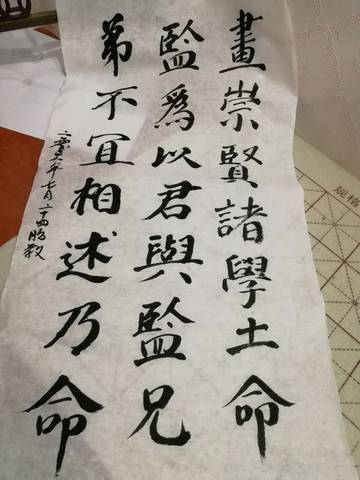 畫崇賢諸學土命
監爲以君與監兄
弟不宜相述乃命
二零一六年七月二十四
规格